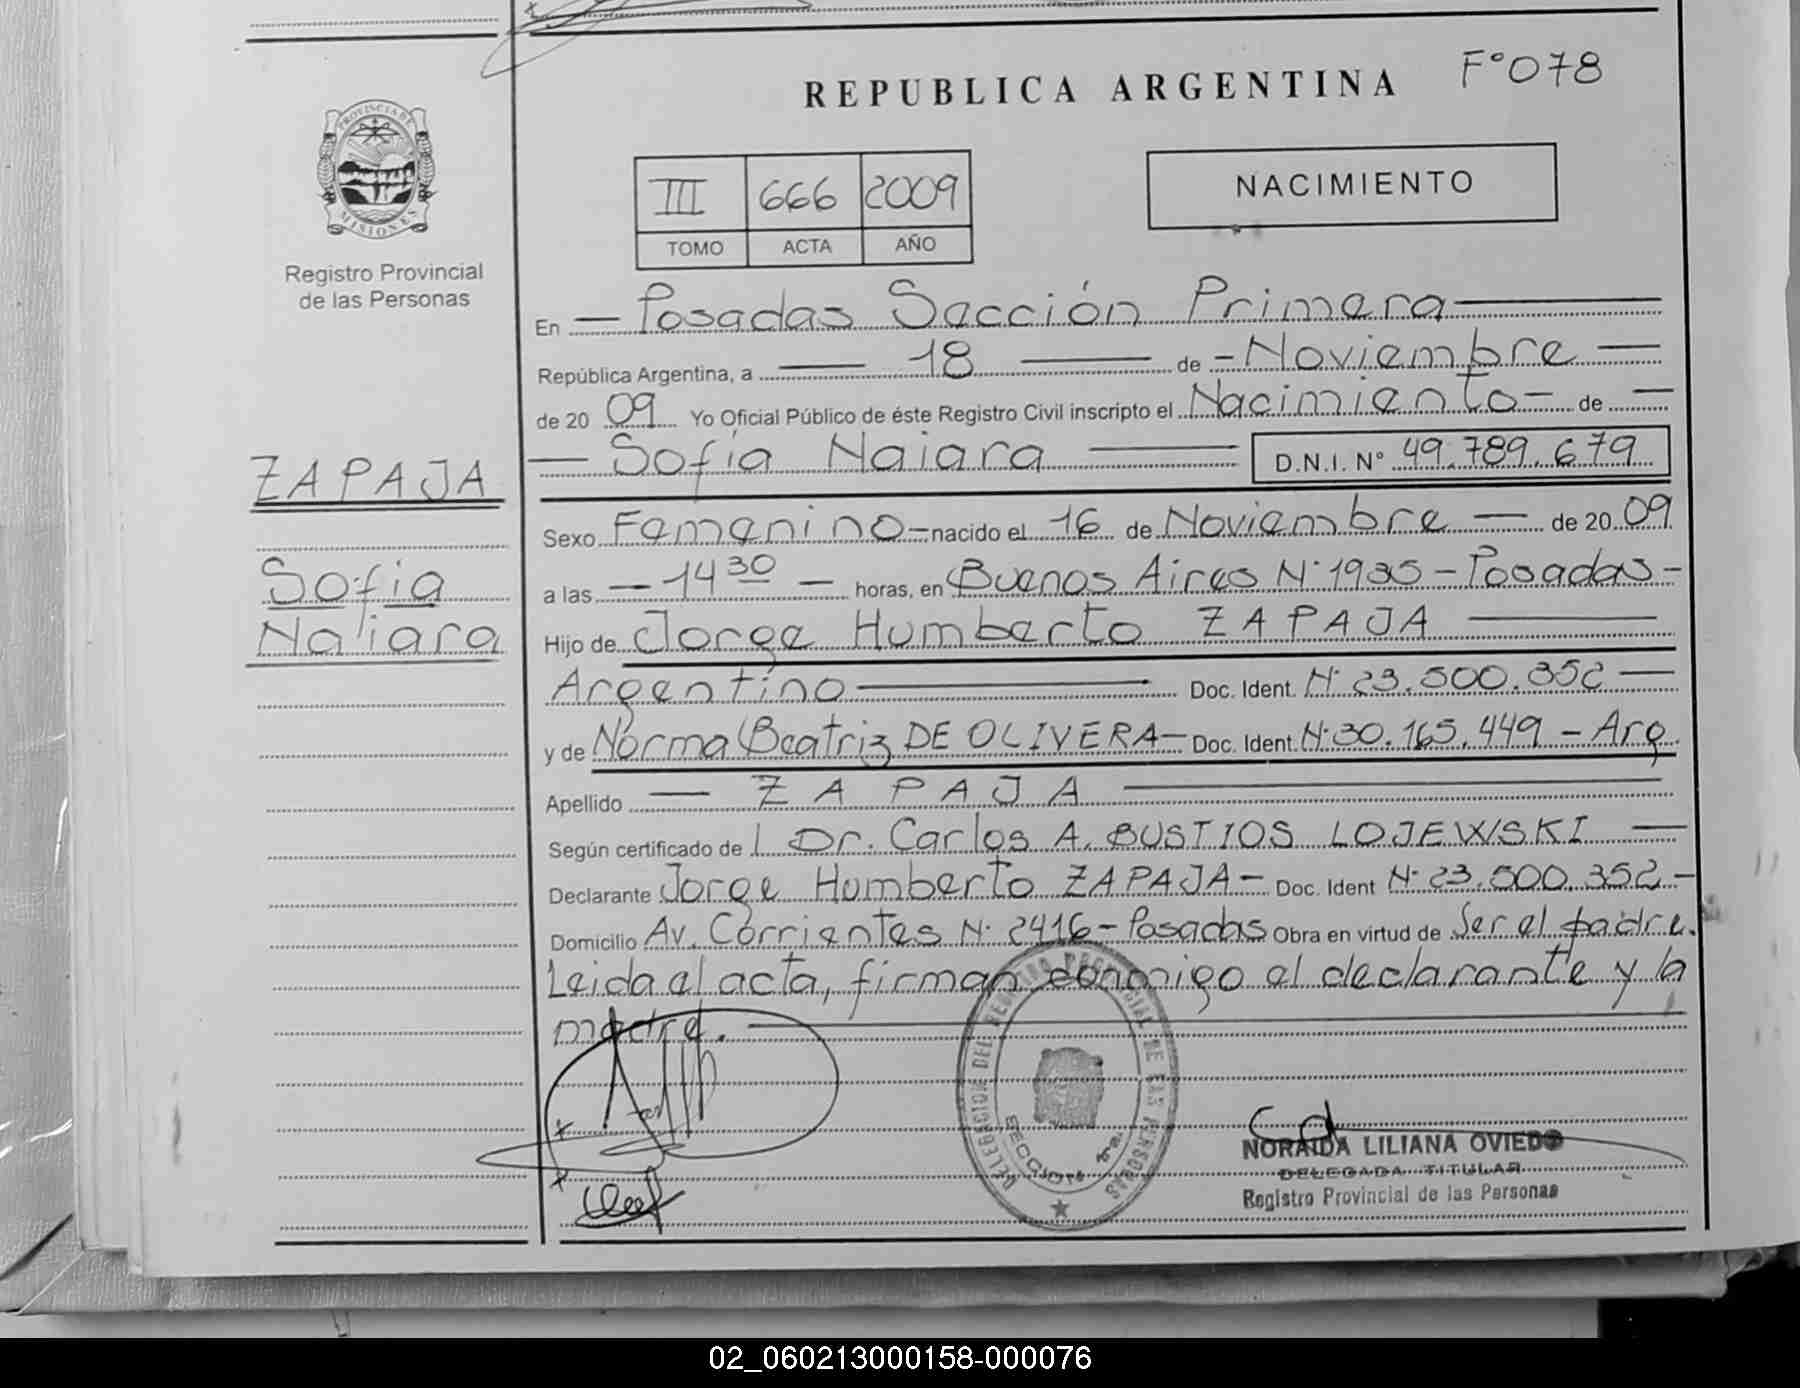 REPUBLICA ARGENTINA F°078
PROVINCIA DE
MISIONES
Registro Provincial
de las Personas
III 666 2009
TOMO ACTA AÑO
NACIMIENTO
En — Posadas Sección Primera —
República Argentina, a — 18 — de - Noviembre —
de 20 09 Yo Oficial Público de éste Registro Civil inscripto el Nacimiento - de —
— Sofía Naiara — D.N.I. N° 49.789.679
ZAPAJA
Sofia
Naiara
Sexo Femenino - nacido el 16 de Noviembre — de 20 09
a las — 14 30 — horas, en Buenos Aires N° 1935 - Posadas -
Hijo de Jorge Humberto ZAPAJA —
Argentino — Doc. Ident. N° 23.500.352 —
y de Norma Beatriz DE OLIVERA - Doc. Ident. N° 30.165.449 - Arg
Apellido — ZAPAJA —
Según certificado de l Dr. Carlos A. BUSTIOS LOJEWSKI —
Declarante Jorge Humberto ZAPAJA - Doc. Ident N° 23.500.352 -
Domicilio Av. Corrientes N° 2416 - Posadas Obra en virtud de Ser el padre.
Leida el acta, firman conmigo el declarante y la
madre. —
DELEGACION DEL REGISTRO PROVINCIAL DE LAS PERSONAS
SECCION 1ra.
NORAIDA LILIANA OVIEDO
DELEGADA TITULAR
Registro Provincial de las Personas
02_060213000158-000076